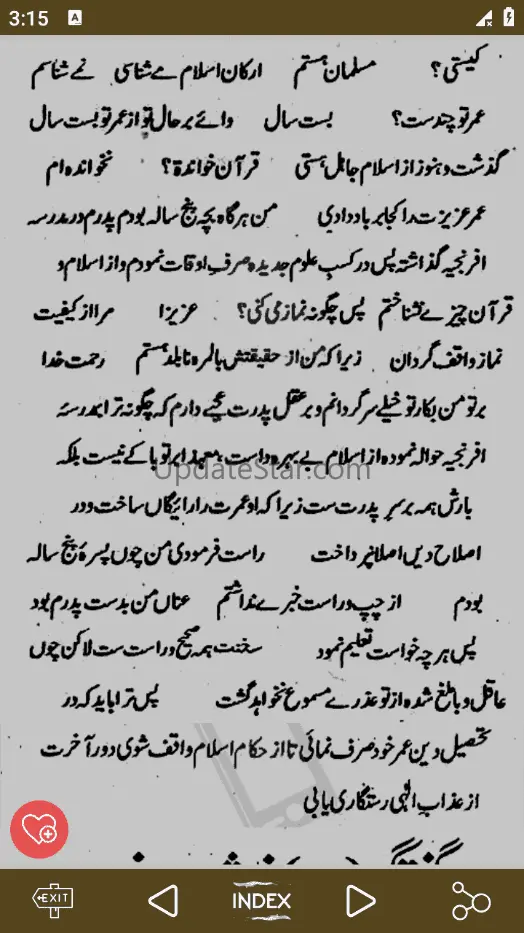 3:15 A
کیستی؟ مسلمان ہستم ارکان اسلام مے شناسی نمے شناسم
عمر تو چندست؟ بست سال وائے بر حال تو از عمر تو بست سال
گذشت و ہنوز از اسلام جاہل ہستی قرآن خواندۂ؟ نخواندہ ام
عمر عزیزت را کجا برباد دادی من ہرگاہ بچہ پنج سالہ بودم پدرم در مدرسہ
افرنجیہ گذاشتہ پس در کسب علوم جدیدہ صرف اوقات نمودم و از اسلام و
قرآن چیزے نشناختم پس چگونہ نماز می کنی؟ عزیزا مرا از کیفیت
نماز واقف گردان زیرا کہ من از حقیقتش بالمرہ نابلد ہستم رحمت خدا
بر تو من بکار تو خیلے سرگردانم و بر عقل پدرت عجبے دارم کہ چگونہ ترا بمدرسۂ
افرنجیہ حوالہ نمودہ از اسلام بے بہرہ داشت معہذا بر تو باکے نیست بلکہ
UpdateStar.com
بارش ہمہ بر سر پدرت ست زیرا کہ او عمرت را رائیگاں ساخت و در
اصلاح دیں اصلا نپرداخت راست فرمودی من چوں پسرۂ پنج سالہ
بودم از چپ و راست خبرے نداشتم عناں من بدست پدرم بود
پس ہر چہ خواست تعلیم نمود سخنت ہمہ صحیح و راست ست لاکن چوں
عاقل و بالغ شدہ از تو عذرے مسموع نخواہد گشت پس ترا باید کہ در
تحصیل دین عمر خود صرف نمائی تا از احکام اسلام واقف شوی و در آخرت
از عذاب الٰہی رستگاری یابی
EXIT INDEX